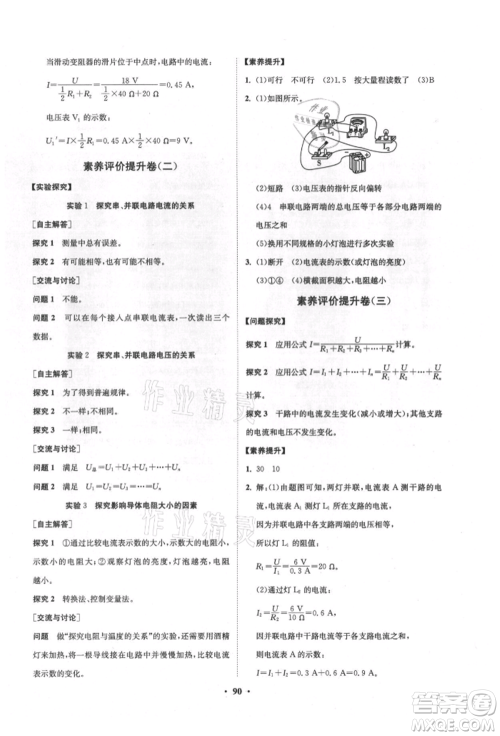 当滑动变阻器的滑片位于中点时,电路中的电流:
I=U/(1/2 R₁+R₂)=18 V/(1/2×40 Ω+20 Ω)=0.45 A,
电压表 V₁ 的示数:
U₁'=I×1/2 R₁=0.45 A×1/2×40 Ω=9 V。
素养评价提升卷(二)
【实验探究】
实验 1 探究串、并联电路电流的关系
[自主解答]
探究 1 测量中总有误差。
探究 2 可能相等,可能不相等。
[交流与讨论]
问题 1 不能。
问题 2 可以,每个接入点串联电流表,读出三个数据。
实验 2 探究串、并联电路电压的关系
[自主解答]
探究 1 为了得到普遍规律。
探究 2 不一样;不一样。
[交流与讨论]
问题 1 满足 U=U₁+U₂+U₃+…+Uₙ。
问题 2 满足 U₁=U₂=U₃=…=Uₙ。
实验 3 探究影响导体电阻大小的因素
[自主解答]
探究 1 可以;①可以观察电流表示数的大小,示数小,则电阻大;②观察灯泡的亮度,灯泡亮,则电阻小。
探究 2 转换法、控制变量法。
[交流与讨论]
问题 做“探究电阻与温度的关系”时,可以用酒精灯给其中的一根导线缓慢加热,观察比较灯泡亮度和电流表示数的变化。
【素养提升】
1. (1)可行 不可行 (2)1.5 按大量程读数了 (3)B
2. (1)如图所示。
L₁
L₂
S
(2)短路 (3)电压表的指针反向偏转
(4)4 串联电路两端的总电压等于各部分电路两端的电压之和 (5)选择规格不同的小灯泡进行多次实验
3. (1)断开 (2)电流表的示数(或灯泡的亮度)
(3)①④ (4)横截面积越大,电流越大,电阻越小
素养评价提升卷(三)
【问题探究】
探究 1 应用公式 I=U/(R₁+R₂+R₃+…+Rₙ)计算。
探究 2 应用公式 I=U/R₁+U/R₂+U/R₃+…+U/Rₙ
计算。
探究 3 干路中的电流发生变化(减小或增大),其他支路的电流和电压不发生变化。
【素养提升】
1. 30 10
2. 解:(1)由题图可知,两灯并联,电流表 A 测干路的电流,电流表 A₁ 测灯 L₁ 的电流,电压表测电源的电压,因并联电路中各支路两端的电压相等,
所以,灯 L₁ 的阻值:
R₁=U/I₁=6 V/0.3 A=20 Ω。
(2)通过灯 L₂ 的电流:
I₂=U/R₂=6 V/10 Ω=0.6 A,
因并联电路中干路电流等于各支路电流之和,
所以,电流表 A 的示数:
I=I₁+I₂=0.3 A+0.6 A=0.9 A。
· 90 ·
作业精灵
作业精灵
作业精灵
答案圈
MXQE.COM